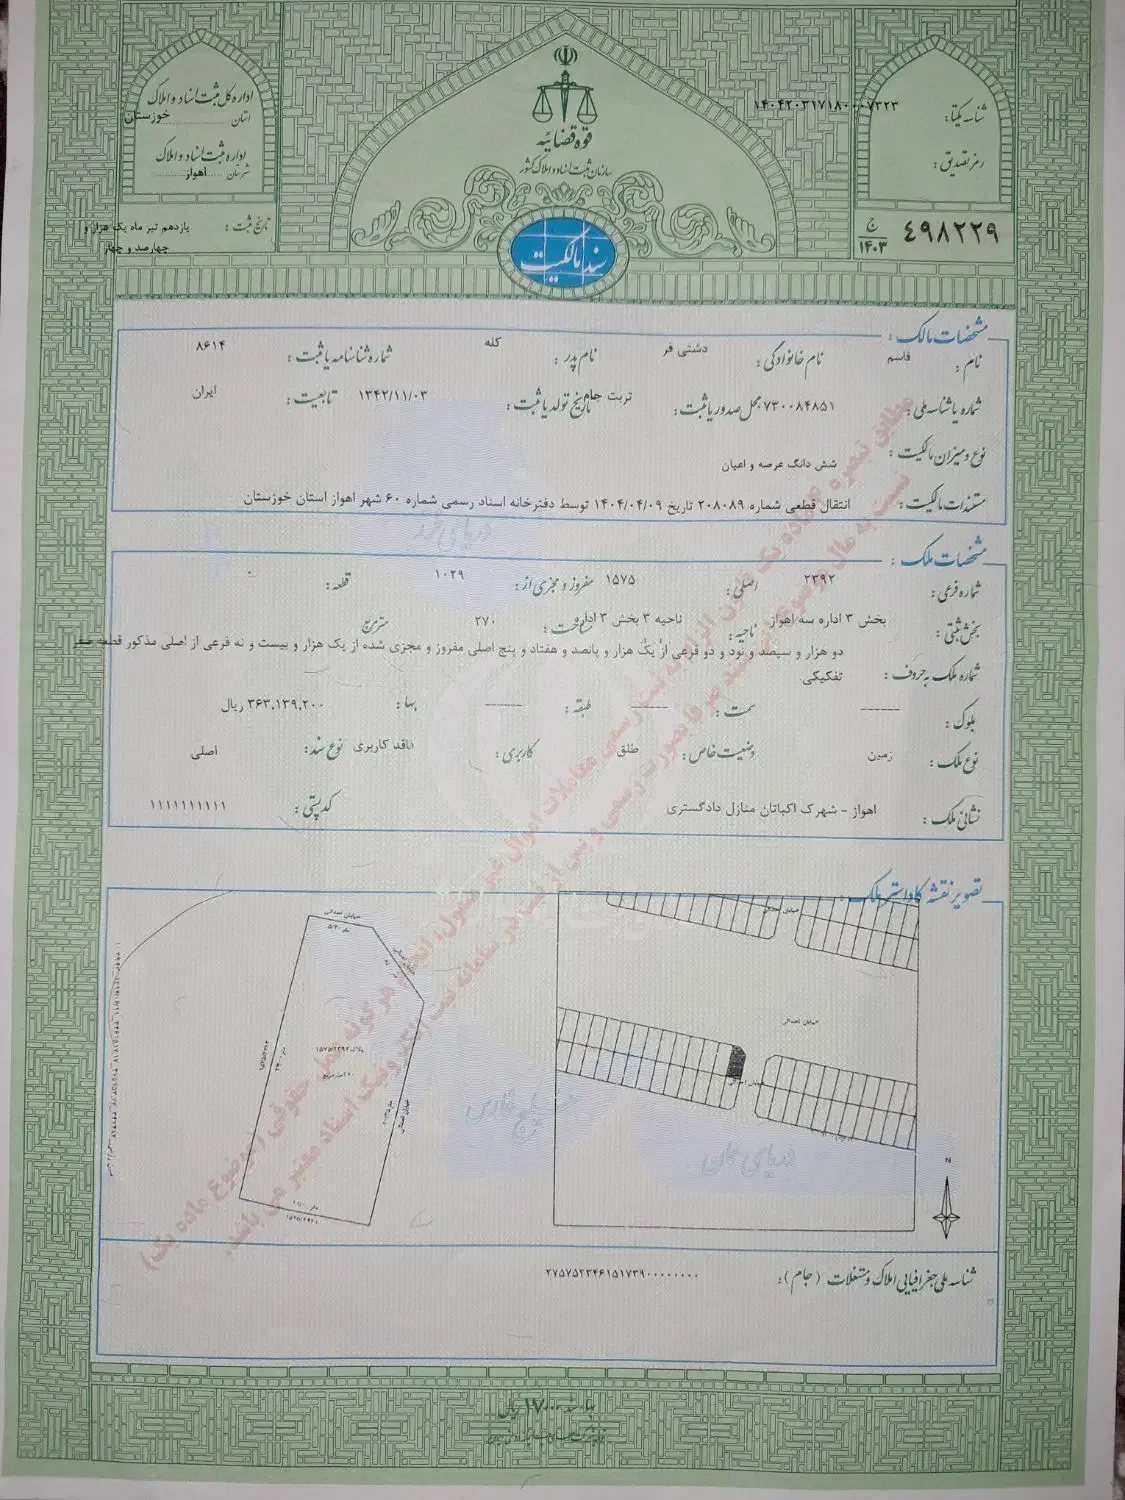 اداره کل ثبت اسناد و املاک
استان خوزستان
اداره ثبت اسناد و املاک
شهرستان اهواز
تاریخ ثبت : یازدهم تیر ماه یک هزار و
چهارصد و چهار
قوه قضائیه
سازمان ثبت اسناد و املاک کشور
سند مالکیت
شناسه یکتا: ۱۴۰۴۲۰۳۱۷۱۸۰۰۰۷۳۲۳
رمز تصدیق :
۴۹۸۲۲۹ ج ۱۴۰۳
مشخصات مالک :
نام : قاسم نام خانوادگی : دشتی فر نام پدر : کله شماره شناسنامه یا ثبت : ۸۶۱۴
شماره یا شناسه ملی : ۷۳۰۰۸۴۸۵۱ محل صدور یا ثبت : تربت جام تاریخ تولد یا ثبت : ۱۳۴۲/۱۱/۰۳ تابعیت : ایران
نوع و میزان مالکیت : شش دانگ عرصه و اعیان
مستندات مالکیت : انتقال قطعی شماره ۲۰۸۰۸۹ تاریخ ۱۴۰۴/۰۴/۰۹ توسط دفترخانه اسناد رسمی شماره ۶۰ شهر اهواز استان خوزستان
دریای خزر
مشخصات ملک :
شماره فرعی : ۲۳۹۲ اصلی : ۱۵۷۵ مفروز و مجزی از : ۱۰۲۹ قطعه : ۰
بخش ثبتی : بخش ۳ اداره سه اهواز ناحیه : ناحیه ۳ بخش ۳ اداره مساحت : ۲۷۰ مترمربع
شماره ملک به حروف : دو هزار و سیصد و نود و دو فرعی از یک هزار و پانصد و هفتاد و پنج اصلی مفروز و مجزی شده از یک هزار و بیست و نه فرعی از اصلی مذکور قطعه صفر
تفکیکی.
بلوک : ------ سمت : ------ طبقه : ------ بها : ۳۶۳,۱۳۹,۲۰۰ ریال
نوع ملک : زمین وضعیت خاص : طلق کاربری : فاقد کاربری نوع سند : اصلی
نشانی ملک : اهواز - شهرک اکباتان منازل دادگستری کد پستی : ۱۱۱۱۱۱۱۱۱۱
تصویر نقشه کاداستر ملک :
خیابان احداثی
خیابان احداثی
خیابان احداثی
خیابان احداثی
پلاک ۱۵۷۵/۲۳۹۲
۲۷۰ مترمربع
خیابان احداثی
خلیج فارس
دریای عمان
N
مطابق تبصره ماده یک قانون الزام به ثبت رسمی معاملات اموال غیر منقول، انجام هر گونه عمل حقوقی (موضوع ماده یک)
نسبت به مال موضوع این سند صرفا بصورت رسمی و پس از ثبت در سامانه ثبت الکترونیک اسناد معتبر می باشد.
شناسه ملی جغرافیایی املاک و مستغلات (جام) : ۲۷۵۷۵۲۳۴۶۱۵۱۷۳۹۰۰۰۰۰۰۰۰